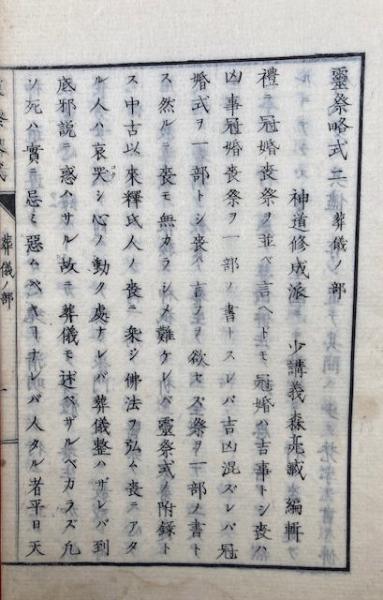 靈祭略式二 葬儀ノ部
神道修成派 少講義 森亮臧 編輯
禮ニ冠婚喪祭ヲ並ベ言ヘドモ冠婚ハ吉事トシ喪ハ
凶事冠婚喪祭ヲ一部ノ書トスレバ吉凶混ズレバ冠
婚式ヲ一部トシ喪ハ言フヲ欲セズ祭ヲ一部ノ書ト
ス然ルニ喪モ無カラシメ難ケレバ靈祭式ノ附録ト
ス中古以來釋氏人ノ喪ニ乘シ佛法ヲ弘ム喪ニアタ
ル人ハ哀哭シ心ノ動ク處ナレバ葬儀整ハザレバ到
底邪說ニ惑ハサル故ニ葬儀モ述ベザルベカラズ凡
ソ死ハ實ニ忌ミ惡ムベキコナレバ人タル者平日天
葬儀ノ部
一